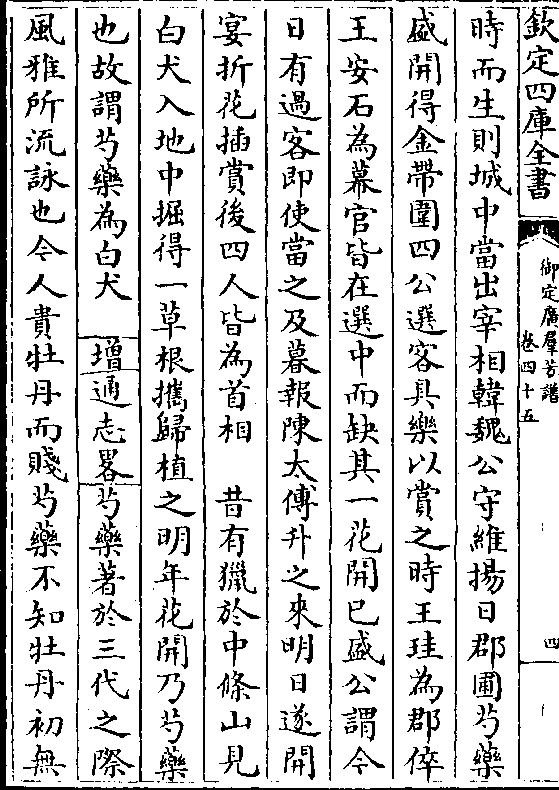 欽定四庫全書
御定廣羣芳譜
卷四十五
四
時而生則城中當出宰相韓魏公守維揚日郡圃芍藥
盛開得金帶圍四公選客具樂以賞之時王珪為郡倅
王安石為幕官皆在選中而缺其一花開已盛公謂今
日有過客即使當之及暮報陳太傅升之來明日遂開
宴折花插賞後四人皆為首相　昔有獵於中條山見
白犬入地中掘得一草根攜歸植之明年花開乃芍藥
也故謂芍藥為白犬　增通志畧芍藥著於三代之際
風雅所流詠也今人貴牡丹而賤芍藥不知牡丹初無